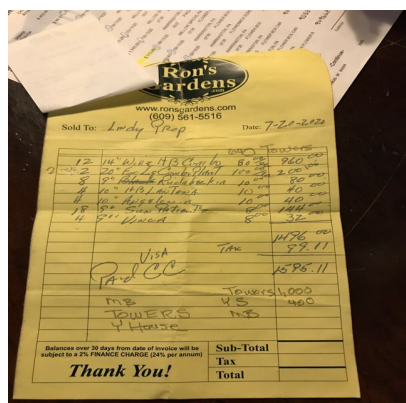 Ron's
Gardens
.com
www.ronsgardens.com
(609) 561-5516
Sold To: Lindy Prop Date: 7-20-2020
Towers
12 14" Wire H B 80 00 960 00
2 20" Combo Plant 100 00 200 00
8 8" Rudabeckia 10 00 80
4 10" H B Lantana 10 00 40
4 10" Angelonia 10 00 40
18 8" Sun Patients 8 00 144 00
4 8" Vinca 8 00 32
1496 00
Visa Tax 99.11
Paid CC 1595.11
Towers 1,000
MB YS 400
TOWERS MB
Y House
Balances over 30 days from date of invoice will be
subject to a 2% FINANCE CHARGE (24% per annum)
Thank You!
Sub-Total
Tax
Total